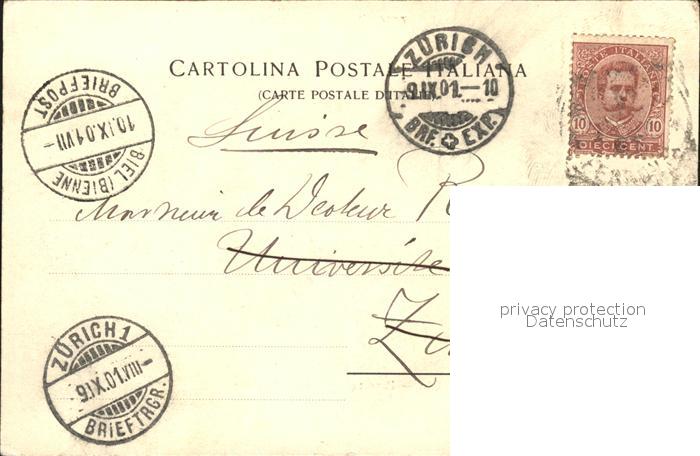 CARTOLINA POSTALE ITALIANA
(CARTE POSTALE D'ITALIE)
ZÜRICH
9.IX.01.—10
BRF. EXP.
POSTE ITALIANE
10 10
DIECI CENT
BRIEFPOST
10.IX.01.VII—
BIEL (BIENNE)
Suisse
Monsieur le Docteur R
Université
Zu
ZÜRICH 1
9.IX.01.VIII—
BRIEFTRGR.
privacy protection
Datenschutz